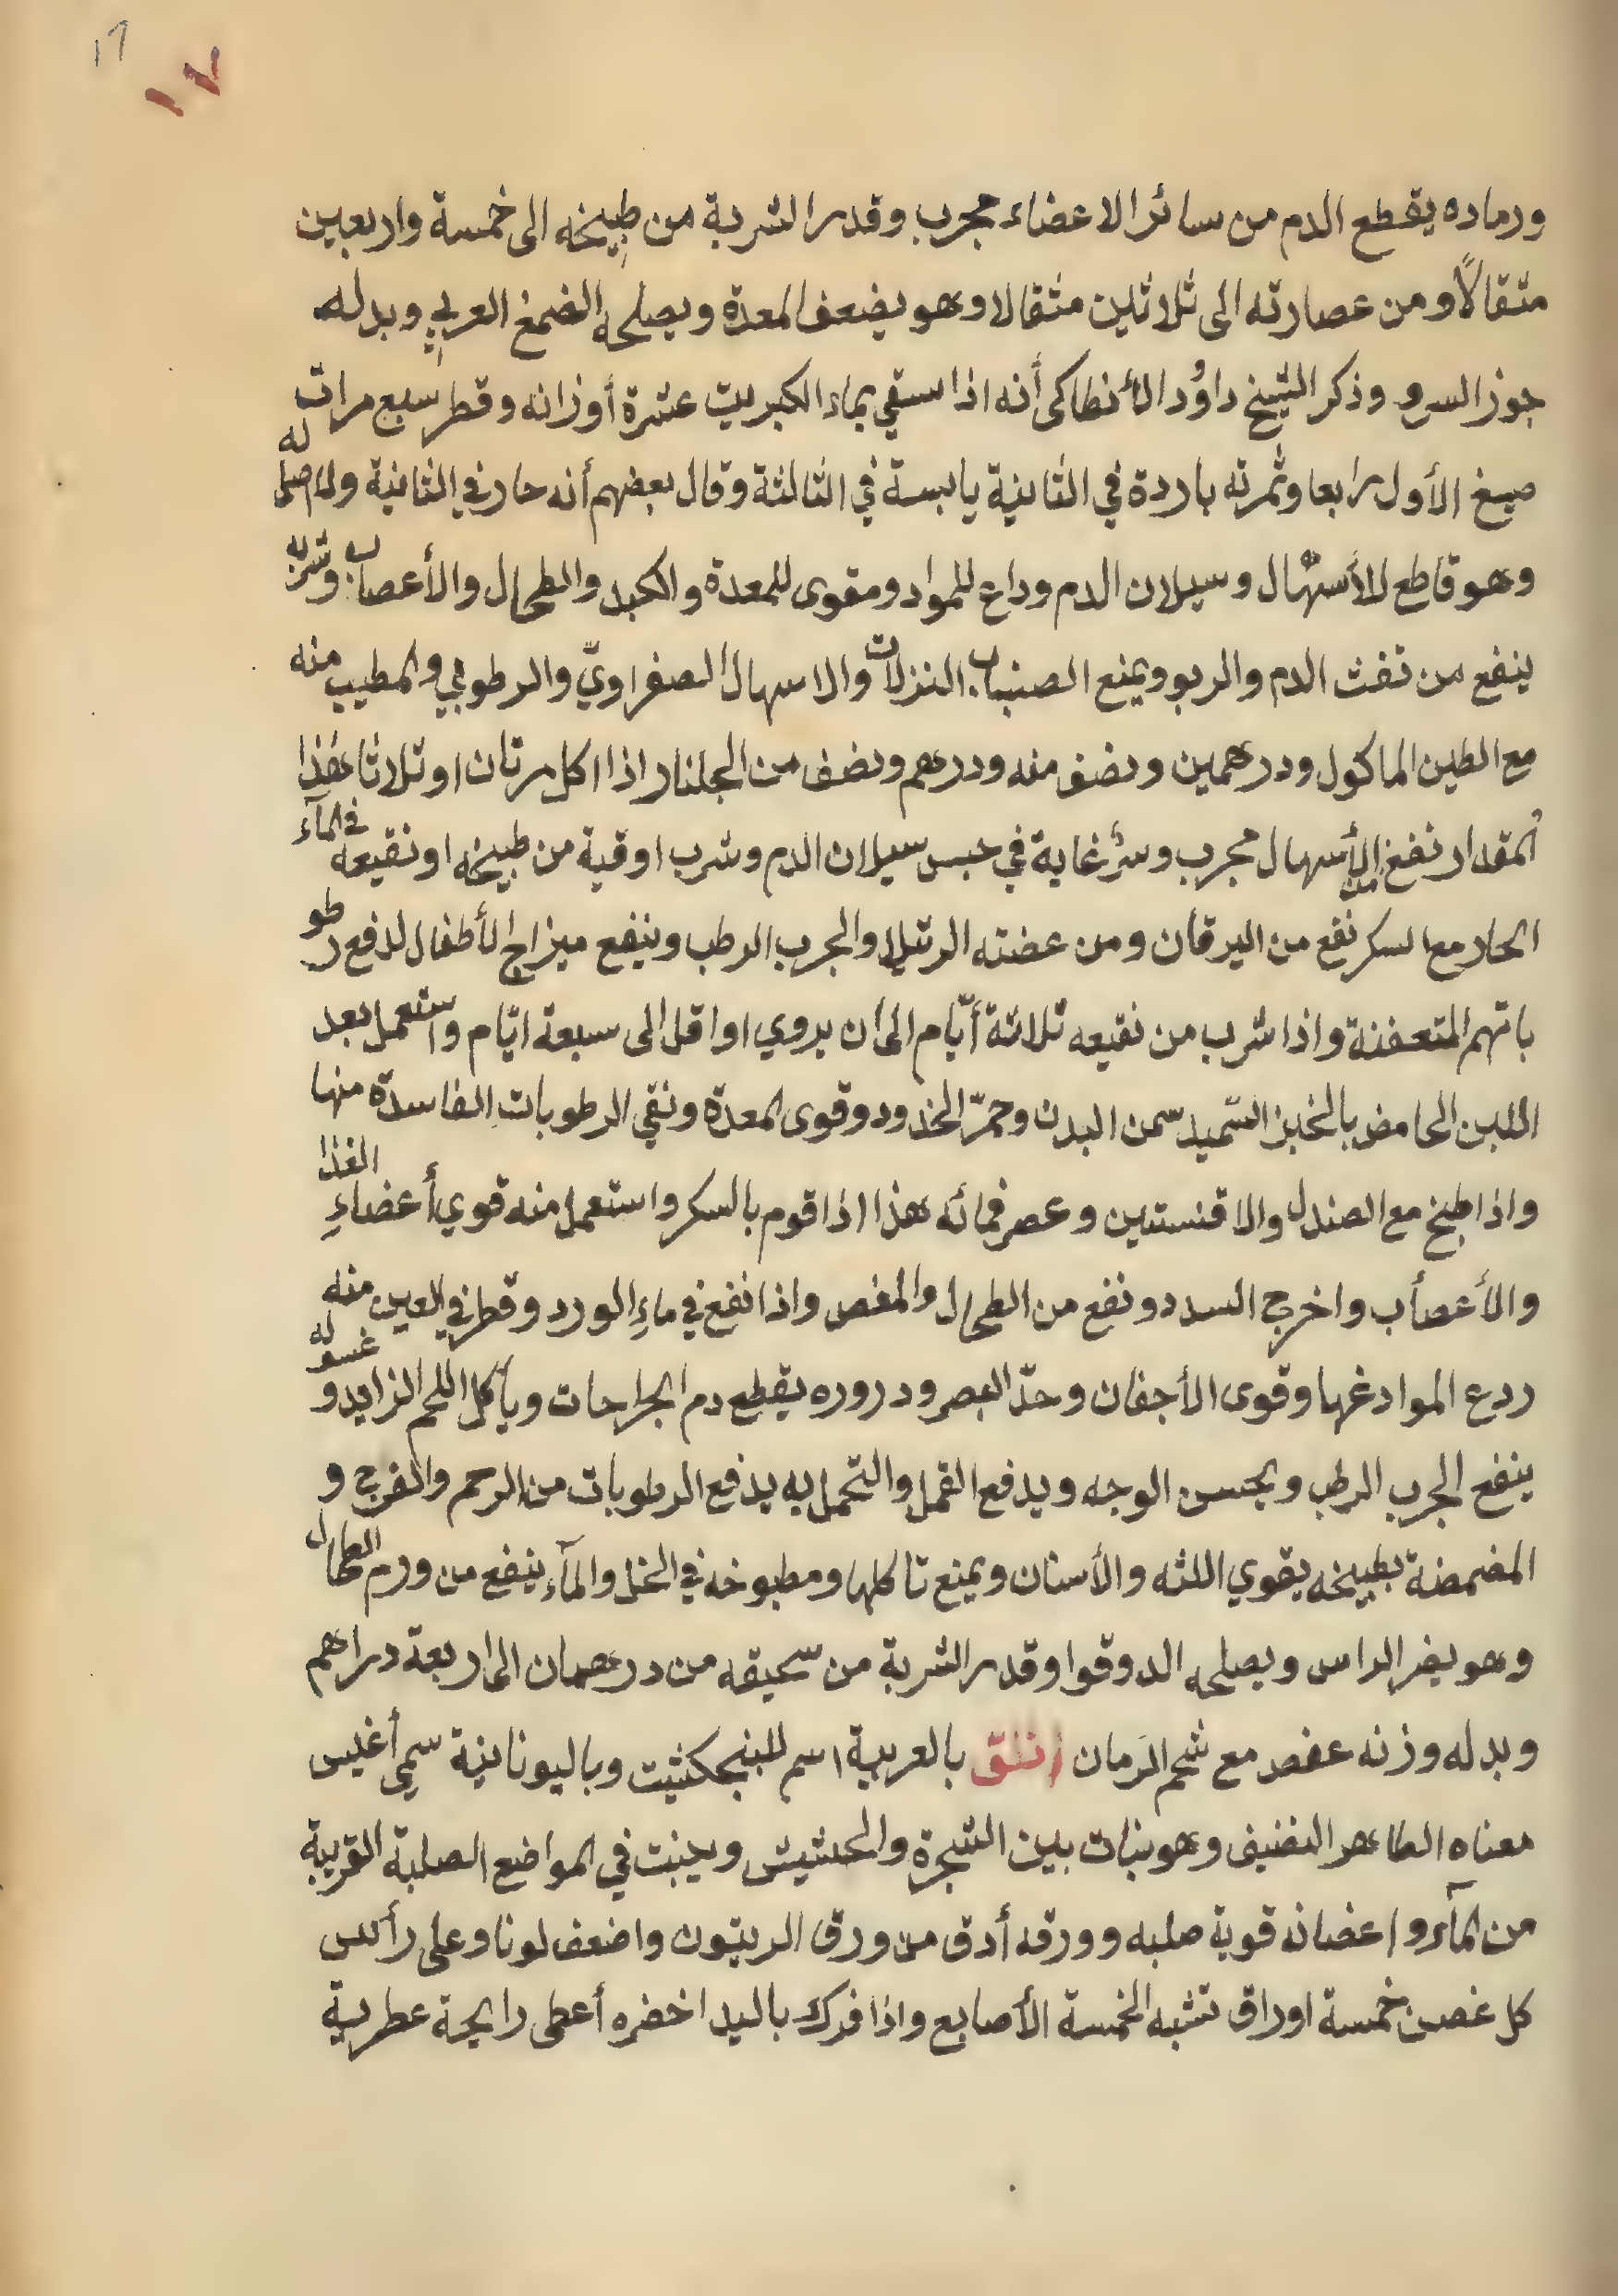 ١٦
١٧
ورماده يقطع الدم من سائر الاعضاء مجرب وقدر الشربة من طبيخه الى خمسة واربعين
مثقالاً ومن عصارته الى ثلاثين مثقالا وهو يضعف المعدة ويصلحه الضمغ العربي وبدله
جوز السرو وذكر الشيخ داوُد الأنطاكى أنه اذا سقي بماء الكبريت عشرة أوزانه وقطر سبع مرات
صبغ الأول رابعا وثمرته باردة في الثانية يابسة في الثالثة وقال بعضهم أنه حار في الثانية ولا اصل له
وهو قاطع للأسهال وسيلان الدم وداع للمواد ومقوى للمعدة والكبد والطحال والأعصاب وشربه
ينفع من نفث الدم والربو ويمنع الصنباب النزلات والاسهال الصفراويّ والرطوبي والمطيب منه
مع الطين الماكول ودرهمين ونصف منه ودرهم ونصف من الجلنار اذا اكل مرتان او ثلاثا بهذا
المقدار نفع من الأسهال مجرب وغاية في حبس سيلان الدم وشرب اوقية من طبيخه او نقيعه في المآء
الحار مع السكر نفع من اليرقان ومن عضته الرتيلا والجرب الرطب وينفع ميزاج الأطفال لدفع رطو
باتهم المتعفنة واذا شرب من نقيعه ثلاثة أيّام الى ان يروي او اقل الى سبعة ايّام واستعمل بعد
اللبن الحامض بالخبز السّميد سّمن البدن وحمرّ الخدود وقوى المعدة ونقي الرطوبات الفاسدة منها
واذا طبخ مع الصندل والاقنستين وعصر فمائه هذا اذا قوم بالسكر واستعمل منه قوي أعضاءِ الغذا
والأعصأب واخرج السدد ونفع من الطحال والمغص واذا نفع في ماءِ الورد وقطر في العين منه
ردع المواد غها وقوى الأجفان وحدّ البصر ودروره يقطع دم الجراحات وياكل اللحم الزايد و غسوله
ينفع الجرب الرطب ويحسن الوجه ويدفع القمل والتحمل به يدفع الرطوبات من الرحم والفرج و
المضمضة بطبيخه يقوي اللثه والأسنان ويمنع تاكلها ومطبوخه في الخل والمآء ينفع من ورم الطحال
وهو يضر الراس ويصلحه الدوقوا وقدر الشربة من سحيقه من درهمان الى اربعة دراهم
وبدله وزنه عفص مع شحم الرمان اثلق بالعربية اسم للبنجكشت وباليونانية سمي أغيس
معناه الطاهر النضيف وهو نبات بين الشجرة والحشيش وينبت في المواضع الصلبة القريبة
من المآء واغضانه قوية صلبه وورقه أدق من ورق الريتون واضعف لونا وعلى رأس
كل غصن خمسة اوراق تشبه الخمسة الأصابع واذا فرك باليد اخضره أعطى رايحة عطرية